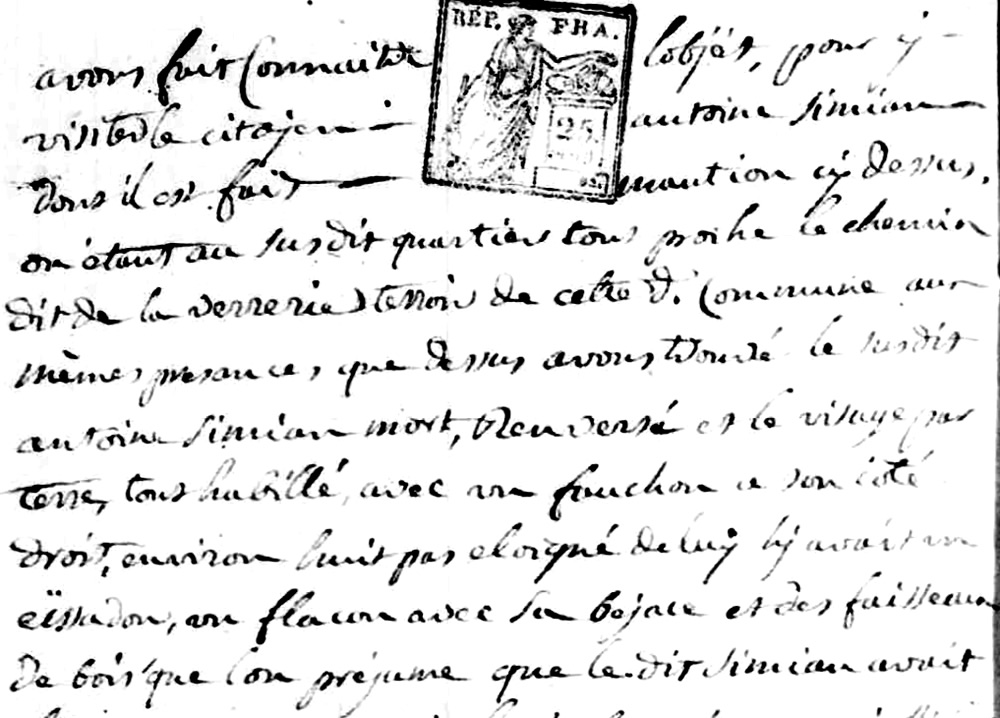 RÉP. FRA.
25
avons fait Connaitre lobjet, pour y
visiter le citoyen antoine Simian
dont il est fait mantion cy dessus,
on étant au susdit quartier tout proche le chemin
dit de la verrerie terroir de cette d. Commune aux
mêmes presances que dessus avons trouvé le susdit
antoine Simian mort, Renversé et le visage par
terre, tout habillé, avec un fauchon a son côté
droit, environ huit pas eloigné de luy il y avait un
eissadon, un flacon avec sa bejace et des faisseaux
De bois que lon préjume que le dit Simian avait